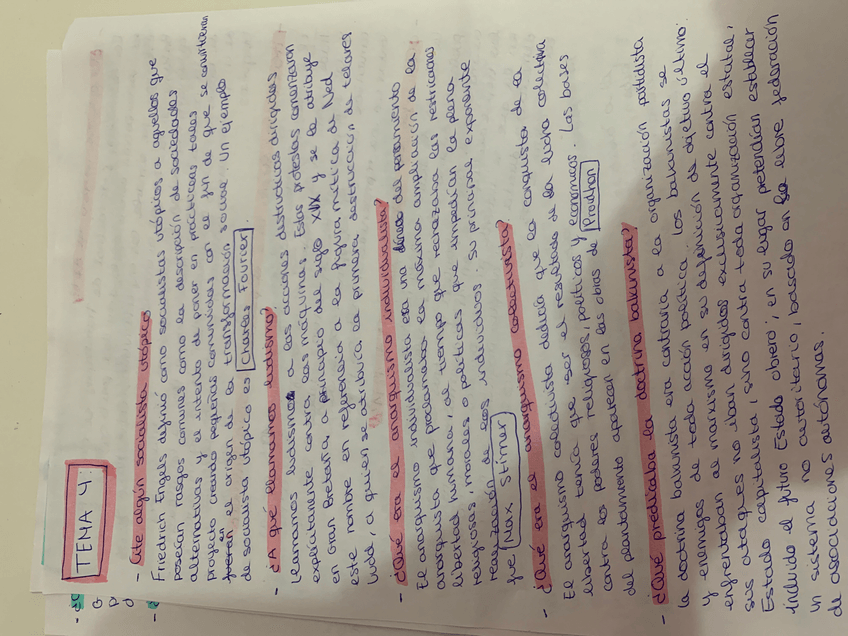 TEMA 4.
- Cite algún socialista utópico
Friedrich Engels definió como socialistas utópicos a aquellos que
poseían rasgos comunes como la descripción de sociedades
alternativas y el intento de poner en prácticas tales
proyecto creando pequeñas comunidades con el fin de que se convirtieran
en el origen de la transformación social. Un ejemplo
de socialista utópico es Charles Fourier
- ¿A qué llamamos ludismo?
Llamamos ludismo a las acciones destructivas dirigidas
explícitamente contra las máquinas. Estas protestas comenzaron
en Gran Bretaña, a principio del siglo XIX y se le atribuye
este nombre en referencia a la figura mítica de Ned
Ludd, a quien se atribuía la primera destrucción de telares
- ¿Qué era el anarquismo individualista?
El anarquismo individualista era una línea del pensamiento
anarquista que proclamaba la máxima ampliación de la
libertad humana, al tiempo que rechazaba las restricciones
religiosas, morales o políticas que impedían la plena
realización de los individuos. Su principal exponente
fue Max Stirner
- ¿Qué era el anarquismo colectivista?
El anarquismo colectivista decía que la conquista de la
libertad tenía que ser el resultado de la lucha colectiva
contra los poderes religiosos, políticos y económicos. Las bases
del planteamiento aparecen en las obras de Proudhon
- ¿Qué predicaba la doctrina bakunista?
La doctrina bakunista era contraria a la organización partidista
y enemigos de toda acción política. los bakunistas se
enfrentaban al marxismo en su definición de objetivo último:
sus ataques no iban dirigidos exclusivamente contra el
Estado capitalista, sino contra toda organización estatal,
incluido el futuro Estado obrero; en su lugar pretendían establecer
un sistema no autoritario, basado en la libre federación
de asociaciones autónomas.